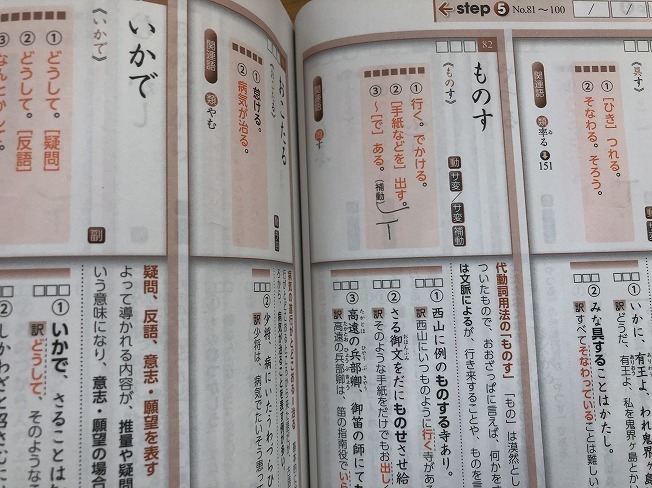 ←step 5 No.81～100
具す
① 【ひき】つれる。
② そなわる。そろう。
関連語
類 率る 151
① いかに、有王よ、われ鬼界ヶ島
訳 どうだ、有王よ、私を鬼界ヶ島とかい
② みな具することはかたし。
訳 すべてそなわっていることは難しい
82
ものす
《ものす》
動 サ変/サ変 補動
① 行く。でかける。
② 【手紙などを】出す。
③ ～【で】ある。(補動)
関連語
す
代動詞用法の「ものす」 「もの」は漠然とし
ついたもので、おおざっぱに言えば、何かをす
は文脈によるが、行き来することや、ものを言
① 西山に例のものする寺あり。
訳 西山にいつものように行く寺があ
② さる御文をだにものせさせ給
訳 そのような手紙をだけでもお出し
③ 高遠の兵部卿、御笛の師にて
訳 高遠の兵部卿は、笛の指南役でいら
おこたる
① 怠ける。
② 病気が治る。
関連語
類 やむ
② 少将、病にいたうわづらひ
訳 少将は、病気でたいそう患っ
いかで
《いかで》
副
① どうして。【疑問】
② どうして。【反語】
③ なんとかして。
疑問、反語、意志・願望を表す
よって導かれる内容が、推量や疑問
いう意味になり、意志・願望の場合
① いかで、さることは
訳 どうして、そのような
② しかわざと召さむに